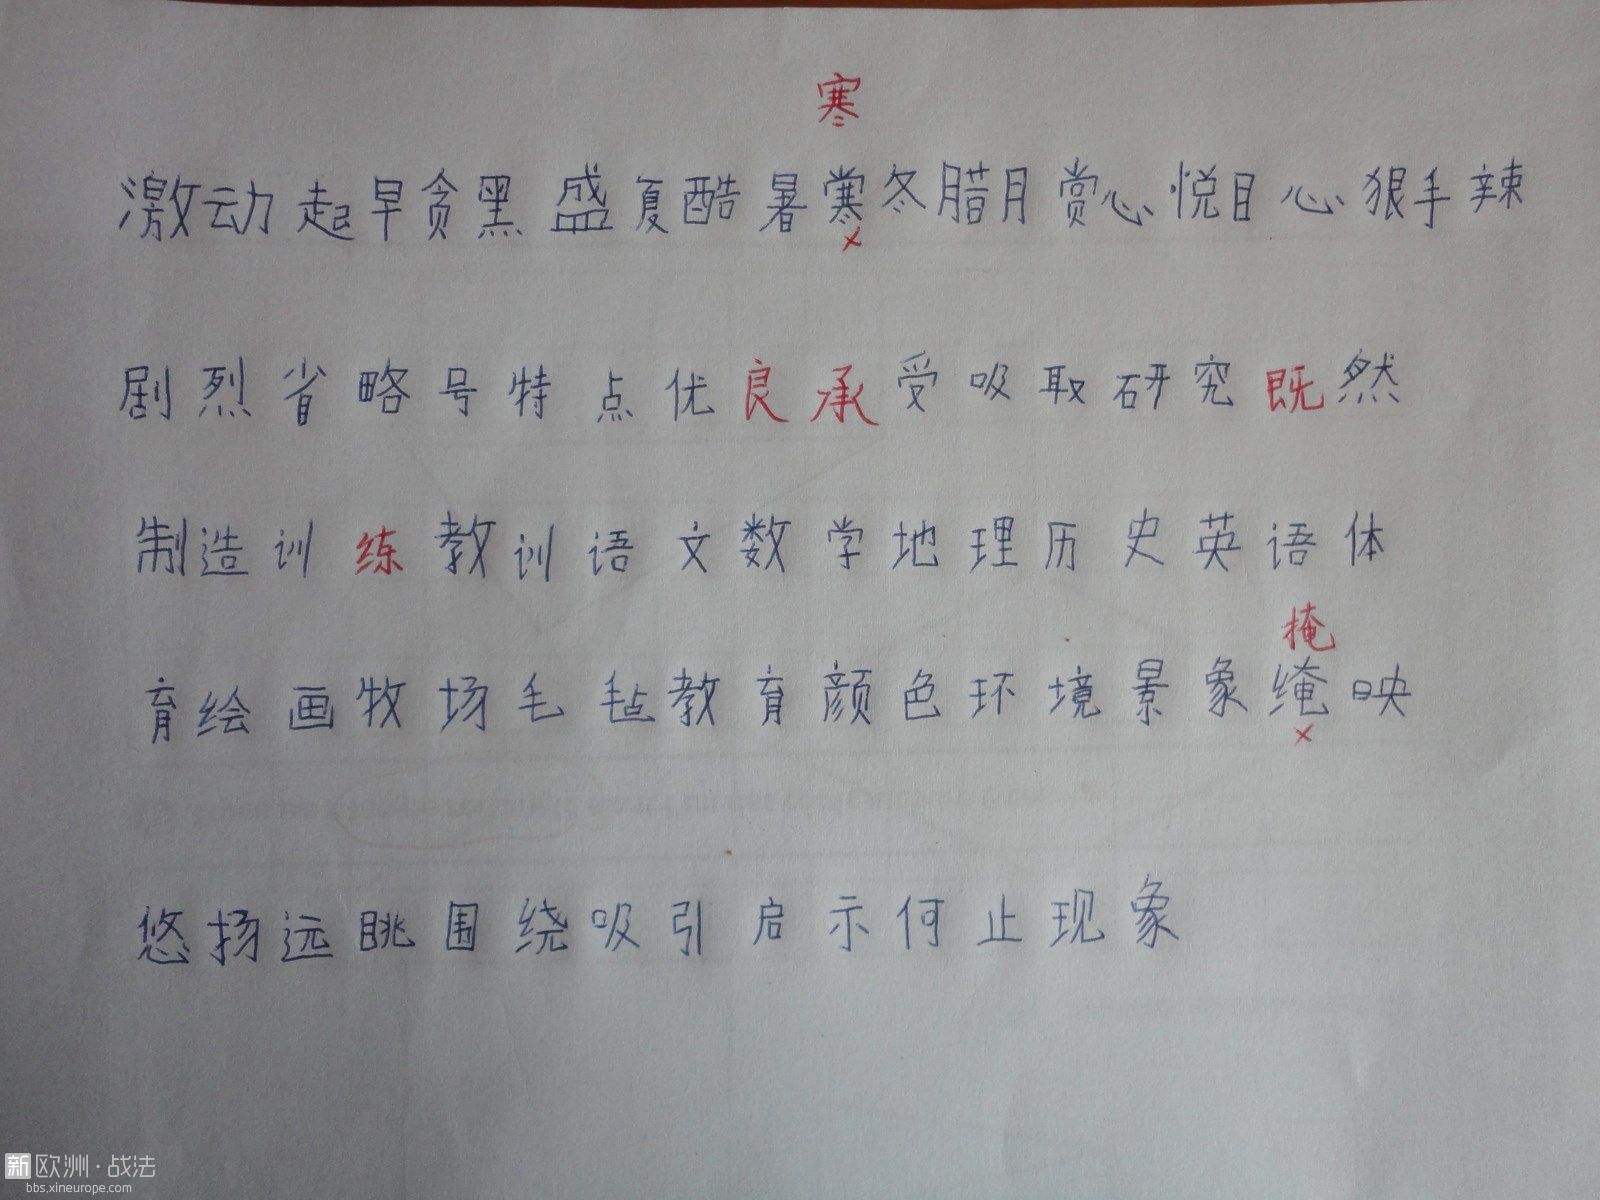 寒
激动起早贪黑盛夏酷暑寒冬腊月赏心悦目心狠手辣
×
剧烈省略号特点优良承受吸取研究既然
制造训练教训语文数学地理历史英语体
掩
育绘画牧场毛毡教育颜色环境景象缆映
×
悠扬远眺围绕吸引启示何止现象
新欧洲·战法
bbs.xineurope.com